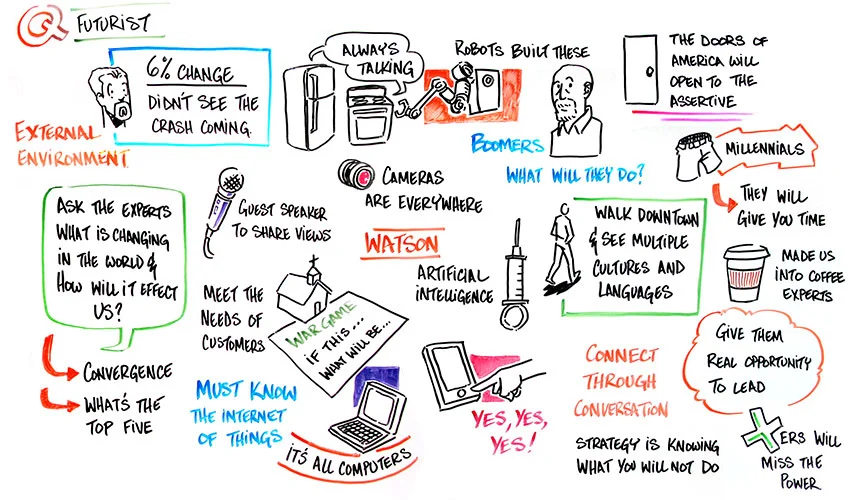 FUTURIST
6% CHANGE
DIDN'T SEE THE
CRASH COMING.
EXTERNAL
ENVIRONMENT
ALWAYS
TALKING
ROBOTS BUILT THESE
THE DOORS OF
AMERICA WILL
OPEN TO THE
ASSERTIVE
BOOMERS
WHAT WILL THEY DO?
MILLENNIALS
THEY WILL
GIVE YOU TIME
ASK THE EXPERTS
WHAT IS CHANGING
IN THE WORLD &
HOW WILL IT EFFECT
US?
CONVERGENCE
WHAT'S THE
TOP FIVE
GUEST SPEAKER
TO SHARE VIEWS
CAMERAS
ARE EVERYWHERE
WATSON
ARTIFICIAL
INTELLIGENCE
WALK DOWNTOWN
& SEE MULTIPLE
CULTURES AND
LANGUAGES
MADE US
INTO COFFEE
EXPERTS
MEET THE
NEEDS OF
CUSTOMERS
WAR GAME
IF THIS...
WHAT WILL BE...
MUST KNOW
THE INTERNET
OF THINGS
IT'S ALL COMPUTERS
YES, YES,
YES!
CONNECT
THROUGH
CONVERSATION
STRATEGY IS KNOWING
WHAT YOU WILL NOT DO
GIVE THEM
REAL OPPORTUNITY
TO LEAD
XERS WILL
MISS THE
POWER